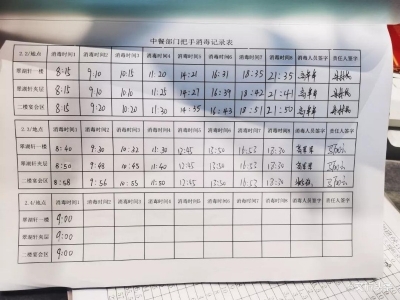 中餐部门把手消毒记录表
2.2/地点 消毒时间1 消毒时间2 消毒时间3 消毒时间4 消毒时间5 消毒时间6 消毒时间7 消毒时间8 消毒人员签字 责任人签字
翠湖轩一楼 8:15 9.10 10.15 11.20 14:21 16:31 18:35 21:35
翠湖轩夹层 8.15 9.10 10.15 11.20 14.27 16:39 18:42 21:41
二楼宴会区 8.15 9.20 10.20 11.30 14.35 16:43 18:51 21:50
2.3/地点 消毒时间1 消毒时间2 消毒时间3 消毒时间4 消毒时间5 消毒时间6 消毒时间7 消毒时间8 消毒人员签字 责任人签字
翠湖轩一楼 8:40 9:30 10:32 11:30 12:45 13:50 16:53 18:30
翠湖轩夹层 8:50 9:45 10:45 11:40 12:45 13:50 16:53 18:30
二楼宴会区 8:58 9:56 10:55 11:50 12:45 13:50 16:53 18:30
2.4/地点 消毒时间1 消毒时间2 消毒时间3 消毒时间4 消毒时间5 消毒时间6 消毒时间7 消毒时间8 消毒人员签字 责任人签字
翠湖轩一楼 9:00
翠湖轩夹层 9:00
二楼宴会区 9:00